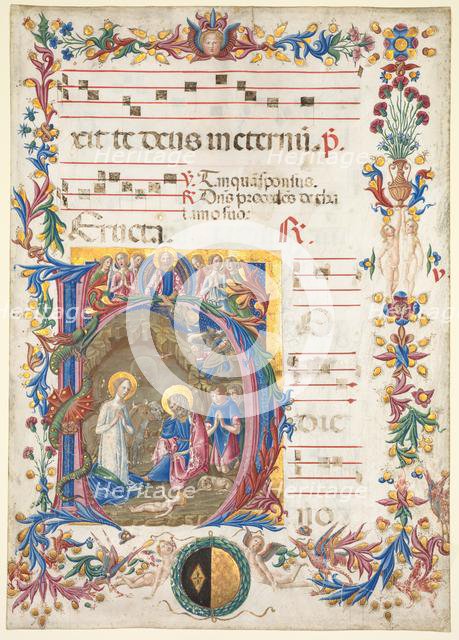 xit te deus in eternū. p̄.
℣. Tanquā sponsus.
℟. Dn̄s procedēs de tha
lamo suo.
Eructa. ℟.
v
H
dic
no
Heritage
Heritage
Heritage
Heritage
Heritage
Heritage
Heritage